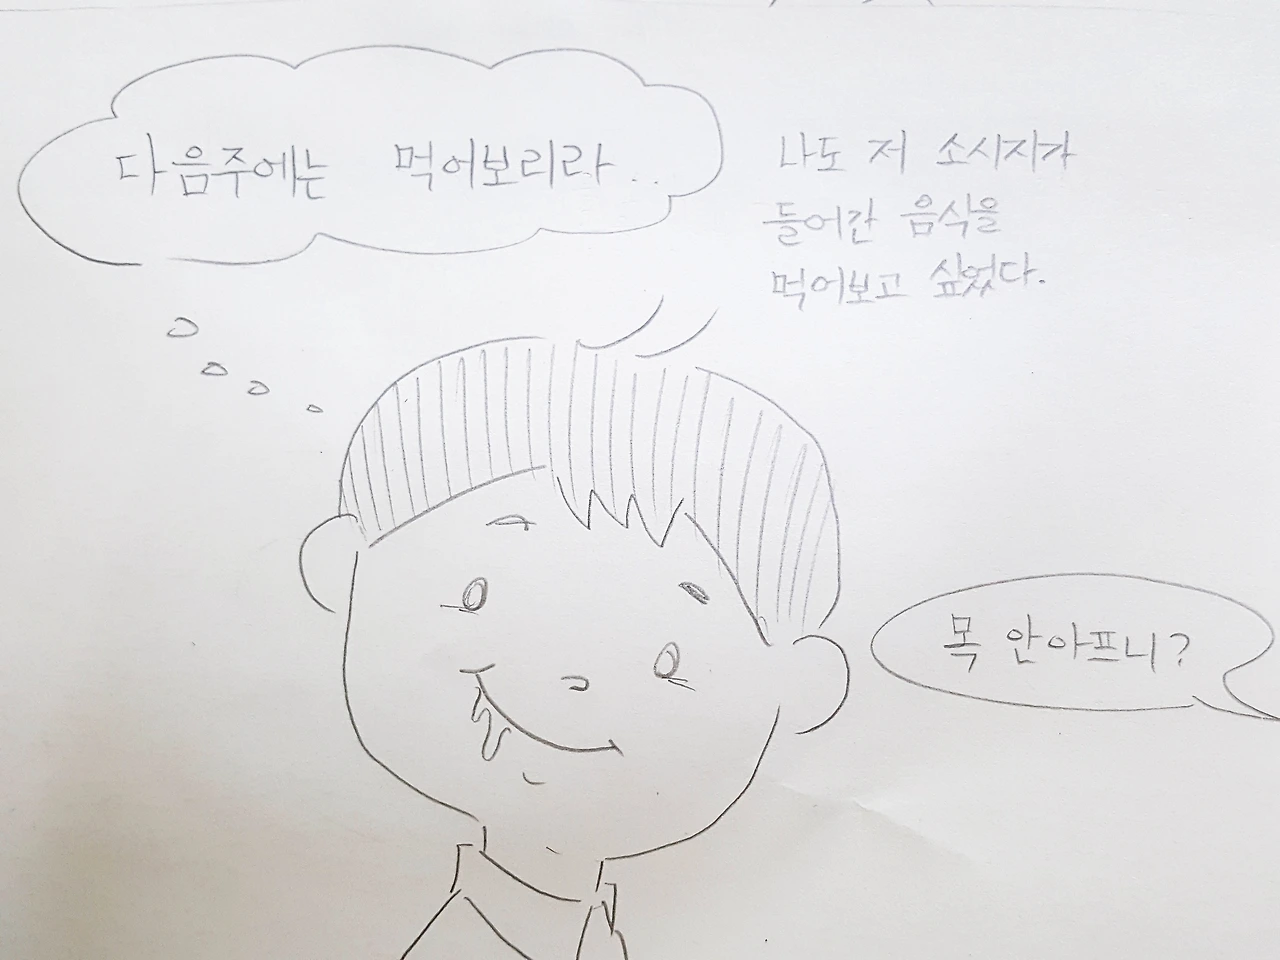 다음주에는 먹어보리라...
나도 저 소시지가
들어간 음식을
먹어보고 싶었다.
목 안아프니?